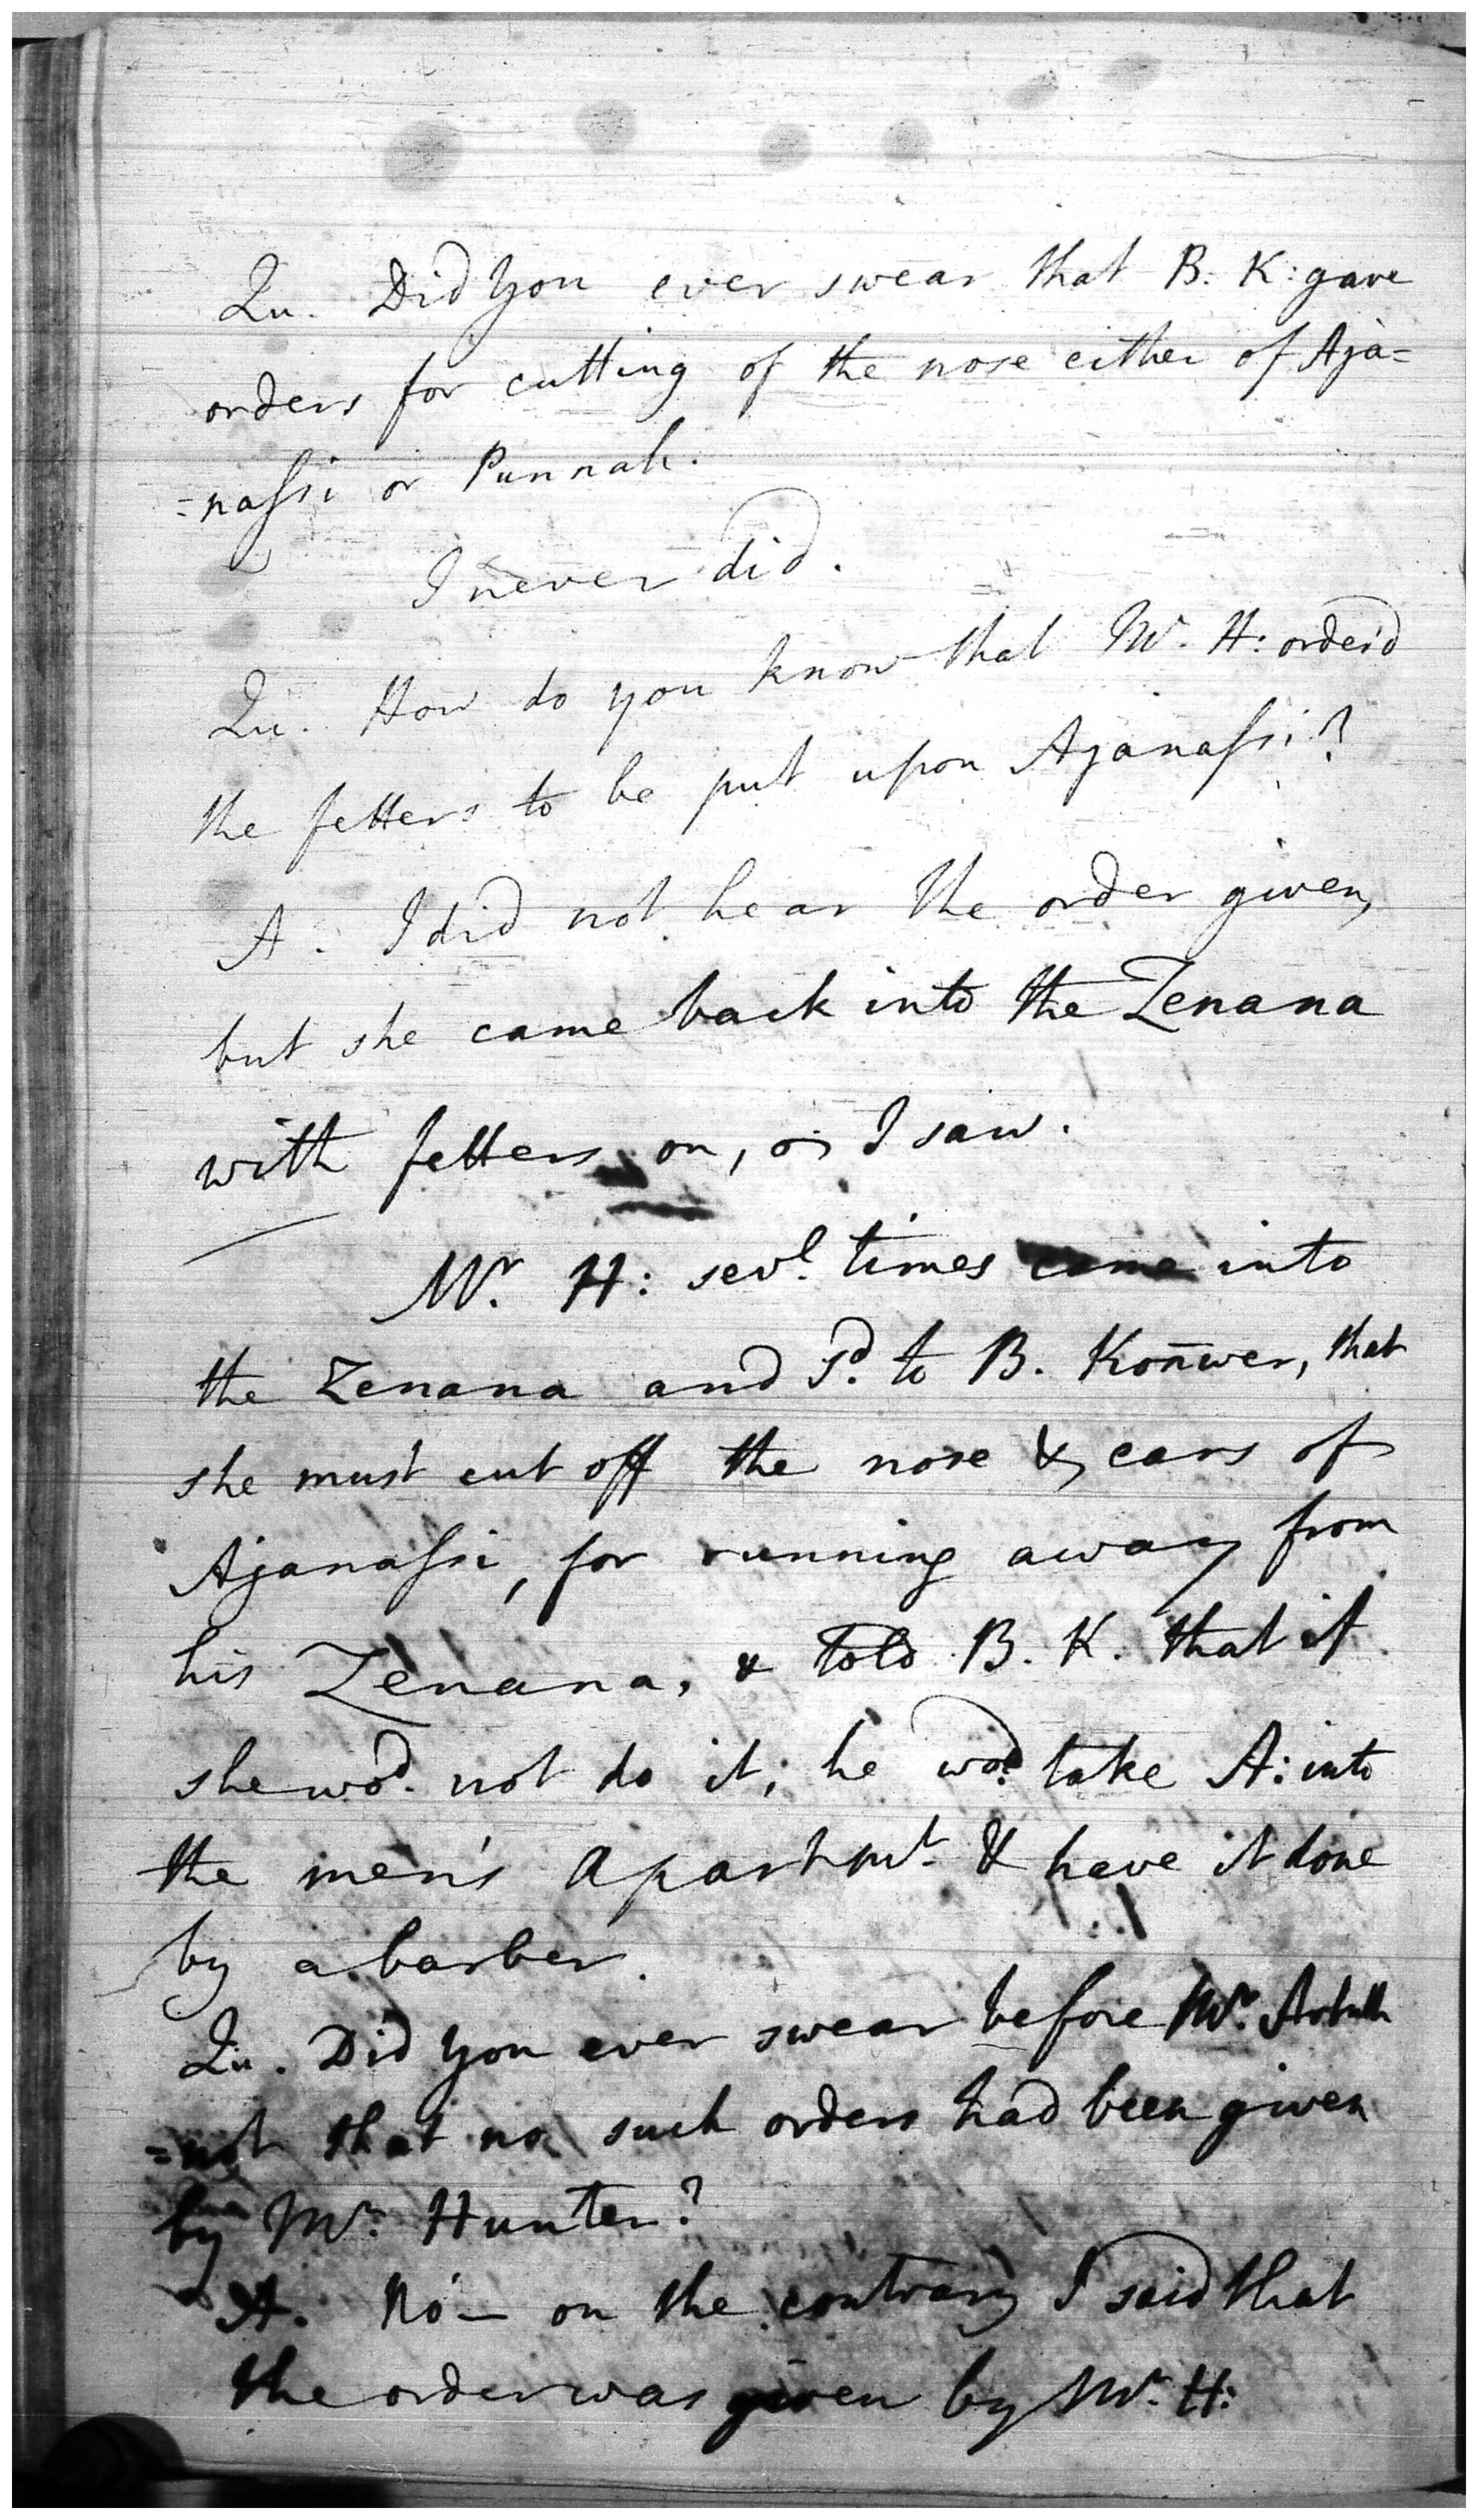 Qu. Did You ever swear that B: K: gave
orders for cutting of the nose either of Aja=
=naſsi or Punnah.
I never did.
Qu. How do you know that Mr. H: order'd
the fetters to be put upon Ajanaſsi?
A. I did not hear the order given,
but she came back into the Zenana
with fetters on, as I saw.
Mr. H: sevl. times came into
the Zenana and sd. to B. Konwer, that
she must cut off the nose & ears of
Ajanaſsi, for running away from
his Zenana, & told B. K. that if
she wod. not do it, he wod. take A: into
the men's Apartmt. & have it done
by a barber.
Qu. Did You ever swear before Mr.
=not that no such orders had been given
by Mr. Hunter?
A. No — on the contrary I said that
the order was given by Mr. H: